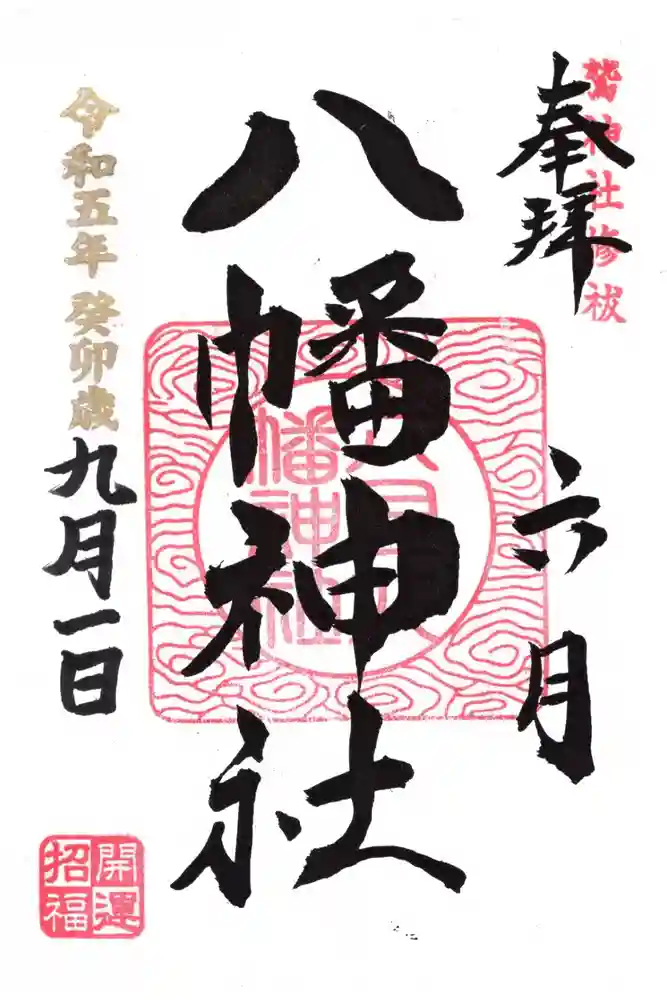 鷲神社修祓
奉拝
六月
八幡神社
六月八幡神社
令和五年 癸卯歳
九月一日
開運
招福